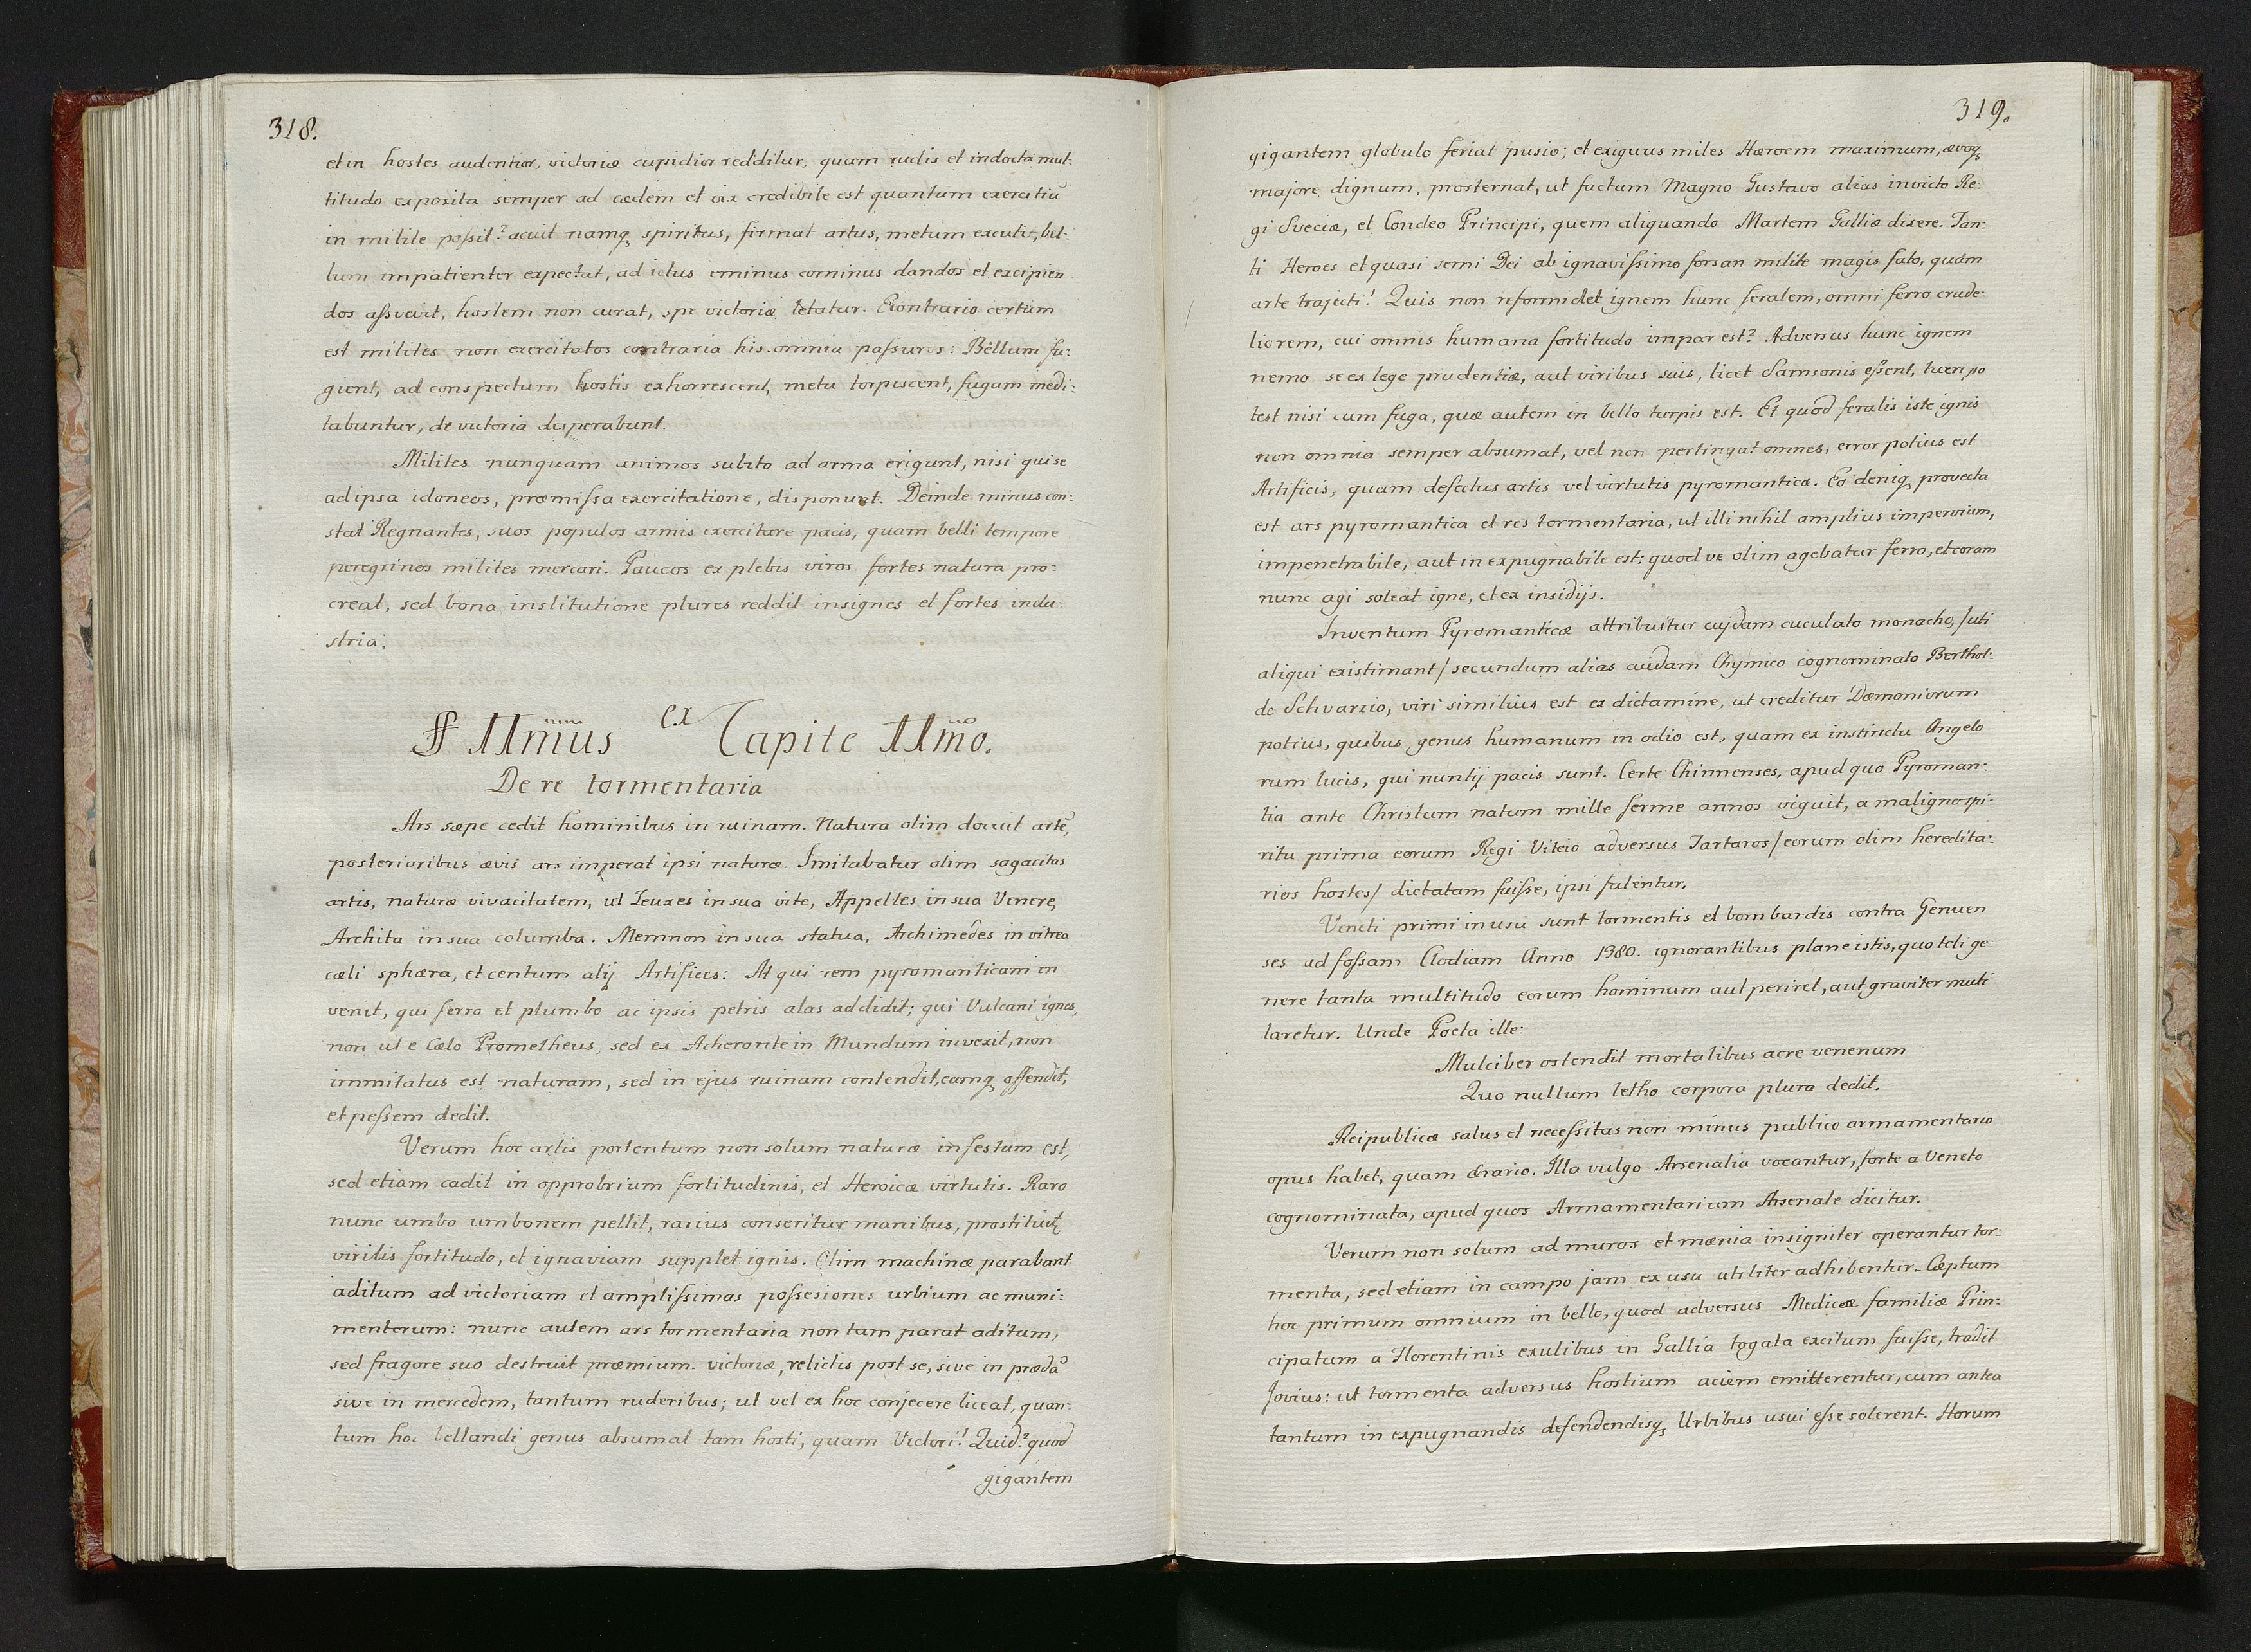 318.
et in hostes audentior, victoriæ cupidior redditur, quam rudis et indocta mul-
titudo exposita semper ad cædem et vix credibile est quantum exercitiũ
in milite possit? acuit namq₃ spiritus, firmat artus, metum excutit, bel-
lum impatienter expectat, ad ictus eminus cominus dandos et excipien
dos assvevit, hostem non curat, spe victoriæ letatur. E contrario certum
est milites non exercitatos contraria his omnia passuros: Bellum fu-
gient, ad conspectum hostis exhorrescent, metu torpescent, fugam medi-
tabuntur, de victoria desperabunt.
Milites nunquam animos subito ad arma erigunt, nisi qui se
ad ipsa idoneos, præmissa exercitatione, disponunt. Deinde minus con-
stat Regnantes, suos populos armis exercitare pacis, quam belli tempore
peregrinos milites mercari. Paucos ex plebis viros fortes natura pro-
creat, sed bona institutione plures reddit insignes et fortes indu-
stria.
§ IImus ex Capite IImo.
De re tormentaria
Ars sæpe cedit hominibus in ruinam. Natura olim docuit artẽ,
posterioribus ævis ars imperat ipsi naturæ. Imitabatur olim sagacitas
artis, naturæ vivacitatem, ut Zeuxes in sua vite, Appelles in sua Venere,
Archita in sua columba. Memnon in sua statua, Archimedes in vitrea
cæli sphæra, et centum alij Artifices: At qui rem pyromanticam in
venit, qui ferro et plumbo ac ipsis petris alas addidit; qui Vulcani ignes,
non ut e Cælo Prometheus, sed ex Acheronte in Mundum invexit, non
immitatus est naturam, sed in ejus ruinam contendit, eamq₃ offendit,
et pessem dedit.
Verum hoc artis portentum non solum naturæ infestum est,
sed etiam cadit in opprobrium fortitudinis, et Heroicæ virtutis. Raro
nunc umbo umbonem pellit, rarius conseritur manibus, prostituit
virilis fortitudo, et ignaviam supplet ignis. Olim machinæ parabant
aditum ad victoriam et amplissimas possesiones urbium ac muni-
mentorum: nunc autem ars tormentaria non tam parat aditum,
sed fragore suo destruit præmium victoriæ, relictis post se, sive in prædã
sive in mercedem, tantum ruderibus; ut vel ex hoc conjecere liceat, quan-
tum hoc bellandi genus absumat tam hosti, quam Victori! Quid? quod
gigantem
319.
gigantem globulo feriat pusio; et exiguus miles Hæroem maximum, ævoq₃
majore dignum, prosternat, ut factum Magno Gustavo alias invicto Re-
gi Sveciæ, et Condeo Principi, quem aliquando Martem Galliæ dixere. Tan-
ti Heroes et quasi semi Dei ab ignavissimo forsan milite magis fato, quam
arte trajecti! Quis non reformidet ignem hunc feralem, omni ferro crude-
liorem, cui omnis humana fortitudo impar est? Adversus hunc ignem
nemo se ex lege prudentiæ, aut viribus suis, licet Samsonis essent, tueri po
test nisi cum fuga, quæ autem in bello turpis est. Et quod feralis iste ignis
non omnia semper absumat, vel non pertingat omnes, error potius est
Artificis, quam defectus artis vel virtutis pyromanticæ. Eo deniq₃ provecta
est ars pyromantica et res tormentaria, ut illi nihil amplius impervium,
impenetrabile, aut inexpugnabile est: quod ve olim agebatur ferro, et coram
nunc agi soleat igne, et ex insidijs.
Inventum Pyromanticæ attribuitur cujdam cuculato monacho, /uti
aliqui existimant/ secundum alias cuidam Chymico cognominato Berthol-
do Schvarzio, viri similius est ex dictamine, ut creditur Dæmoniorum
potius, quibus genus humanum in odio est, quam ex instinctu Angelo
rum lucis, qui nuntij pacis sunt. Certe Chinnenses, apud quo Pyroman-
tia ante Christum natum mille ferme annos viguit, a maligno spi-
ritu prima eorum Regi Viteio adversus Tartaros /eorum olim heredita-
rios hostes/ dictatam fuisse, ipsi fatentur.
Veneti primi in usu sunt tormentis et bombardis contra Genuen
ses ad fossam Clodiam Anno 1380. ignorantibus plane istis, quo teli ge-
nere tanta multitudo eorum hominum aut periret, aut graviter muti
laretur. Unde Poeta ille:
Mulciber ostendit mortalibus acre venenum
Quo nullum letho corpora plura dedit.
Reipublicæ salus et necessitas non minus publico armamentario
opus habet, quam ærario. Illa vulgo Arsenalia vocantur, forte a Veneto
cognominata, apud quos Armamentarium Arsenale dicitur.
Verum non solum ad muros et mænia insigniter operantur tor-
menta, sed etiam in campo jam ex usu utiliter adhibentur. Cæptum
hoc primum omnium in bello, quod adversus Mediceæ familiæ Prin-
cipatum a Florentinis exulibus in Gallia togata excitum fuisse, tradit
Jovius: ut tormenta adversus hostium aciem emitterentur, cum antea
tantum in expugnandis defendendisq₃ Urbibus usui esse solerent. Horum